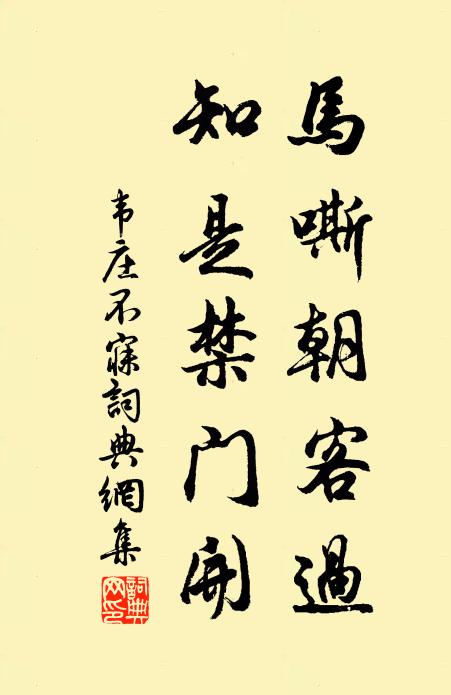 馬嘶朝客過
知是禁门開
韦庄不寐詞典網集
詞典网印